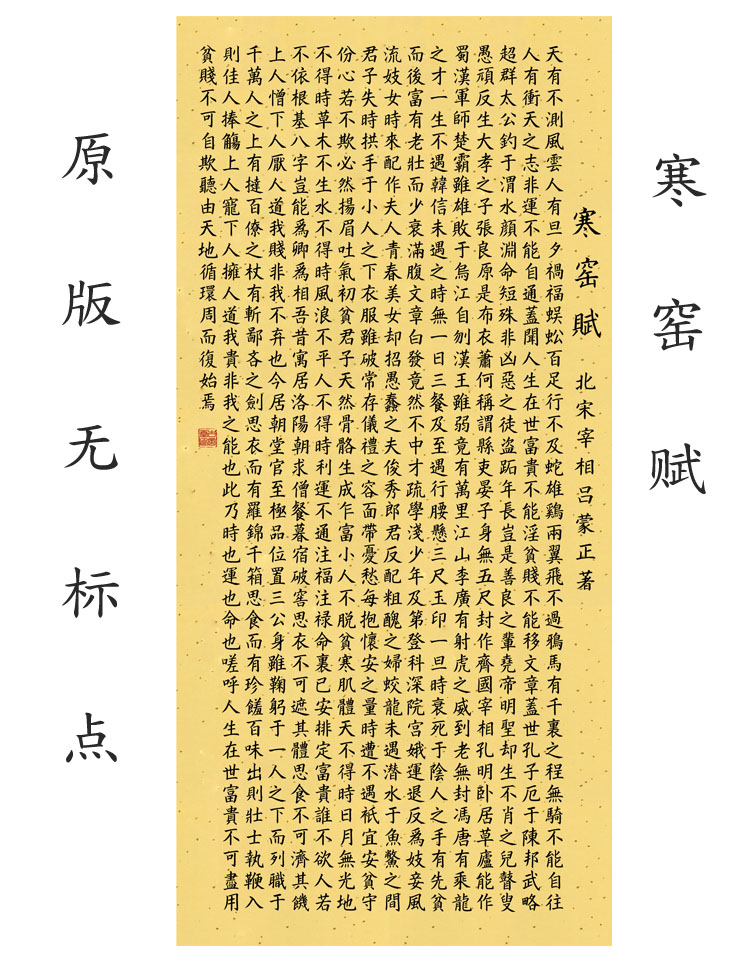 寒窑赋
寒窑賦 北宋宰相吕蒙正著
天有不測風雲人有旦夕禍福蜈蚣百足行不及蛇雄鷄兩翼飛不過鴉馬有千裏之程無騎不能自往
人有衝天之志非運不能自通蓋聞人生在世富貴不能淫貧賤不能移文章蓋世孔子厄于陳邦武略
超群太公釣于渭水顏淵命短殊非凶惡之徒盜跖年長豈是善良之輩堯帝明聖却生不肖之兒瞽叟
愚頑反生大孝之子張良原是布衣蕭何稱謂縣吏晏子身無五尺封作齊國宰相孔明卧居草廬能作
蜀漢軍師楚霸雖雄敗于烏江自刎漢王雖弱竟有萬里江山李廣有射虎之威到老無封馮唐有乘龍
之才一生不遇韓信未遇之時無一日三餐及至遇行腰懸三尺玉印一旦時衰死于陰人之手有先貧
而後富有老壯而少衰滿腹文章白發竟然不中才疏學淺少年及第登科深院宮娥運退反爲妓妾風
流妓女時來配作夫人青春美女却招愚蠢之夫俊秀郎君反配粗醜之婦蛟龍未遇潜水于魚鱉之間
君子失時拱手于小人之下衣服雖破常存儀禮之容面帶憂愁每抱懷安之量時遭不遇衹宜安貧守
份心若不欺必然揚眉吐氣初貧君子天然骨骼生成乍富小人不脱貧寒肌體天不得時日月無光地
不得時草木不生水不得時風浪不平人不得時利運不通注福注禄命裏已安排定富貴誰不欲人若
不依根基八字豈能爲卿爲相吾昔寓居洛陽朝求僧餐暮宿破窖思衣不可遮其體思食不可濟其饑
上人憎下人厭人道我賤非我不弃也今居朝堂官至極品位置三公身雖鞠躬于一人之下而列職于
千萬人之上有撻百僚之杖有斬鄙吝之劍思衣而有羅錦千箱思食而有珍饈百味出則壯士執鞭入
則佳人捧觴上人寵下人擁人道我貴非我之能也此乃時也運也命也嗟呼人生在世富貴不可盡用
貧賤不可自欺聽由天地循環周而復始焉
原版无标点